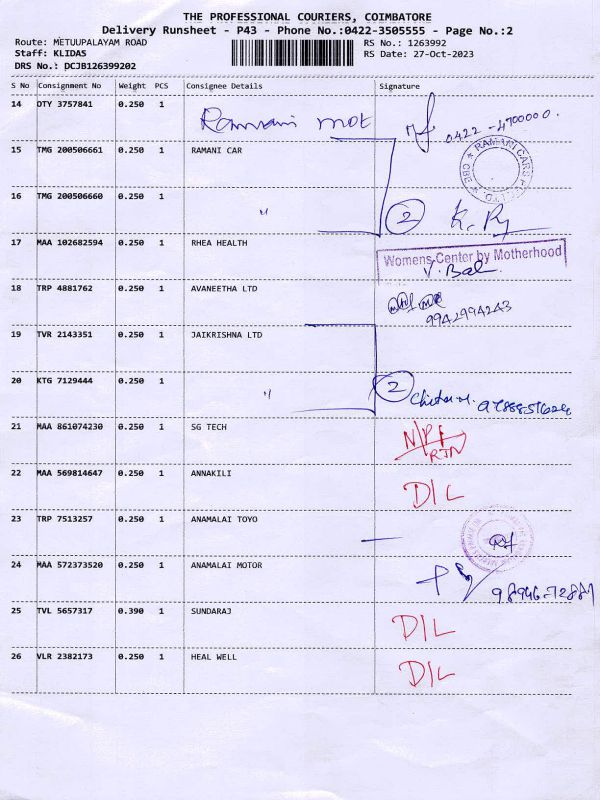 THE PROFESSIONAL COURIERS, COIMBATORE
Delivery Runsheet - P43 - Phone No.:0422-3505555 - Page No.:2
Route: METUUPALAYAM ROAD RS No.: 1263992
Staff: KLIDAS RS Date: 27-Oct-2023
DRS No.: DCJB126399202
S No Consignment No Weight PCS Consignee Details Signature
14 DTY 3757841 0.250 1 Ramani mot 0422-4700000.
15 TMG 200506661 0.250 1 RAMANI CAR
RAMANI CARS CBE
16 TMG 200506660 0.250 1 〃 2
17 MAA 102682594 0.250 1 RHEA HEALTH Womens Center by Motherhood
V. Bal
18 TRP 4881762 0.250 1 AVANEETHA LTD
9942994243
19 TVR 2143351 0.250 1 JAIKRISHNA LTD
20 KTG 7129444 0.250 1 〃 2
21 MAA 861074230 0.250 1 SG TECH N/PF
RTN
22 MAA 569814647 0.250 1 ANNAKILI D/L
23 TRP 7513257 0.250 1 ANAMALAI TOYO
24 MAA 572373520 0.250 1 ANAMALAI MOTOR
25 TVL 5657317 0.390 1 SUNDARAJ D/L
26 VLR 2382173 0.250 1 HEAL WELL D/L